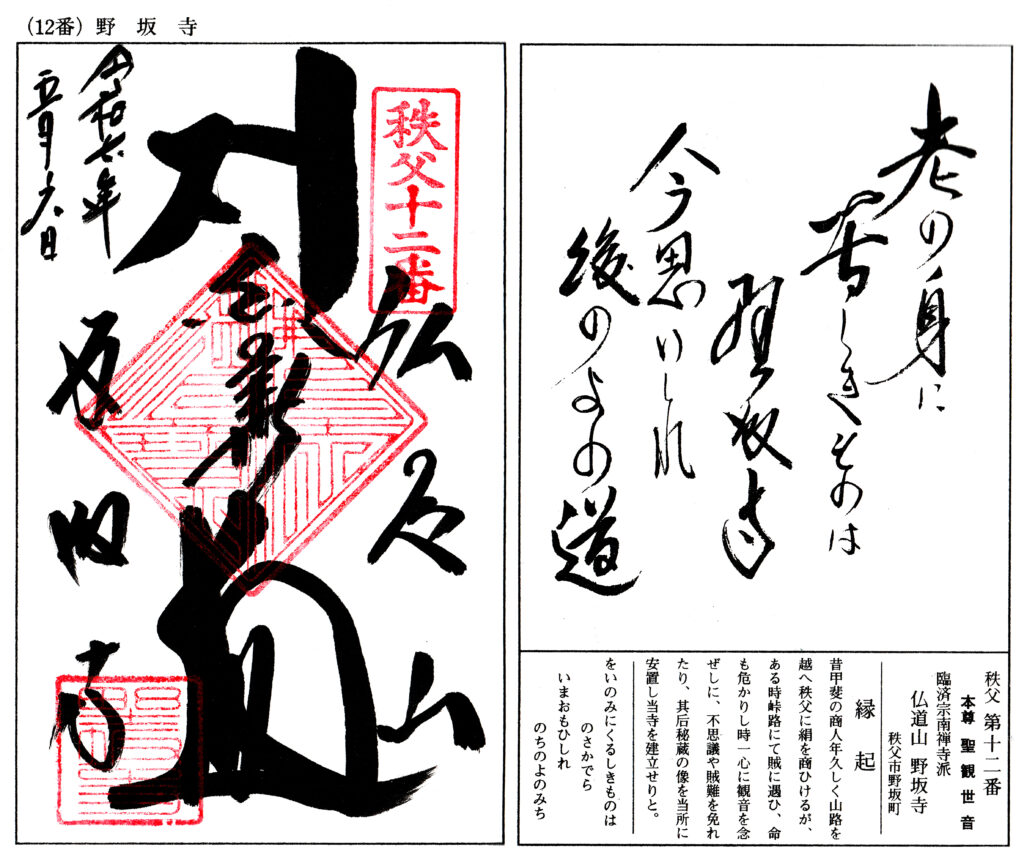 (12番) 野坂寺
老の身に
苦しきものは
野坂寺
今思いしれ
後のよの道
秩父 第十二番
本尊 聖観世音
臨済宗南禅寺派
仏道山 野坂寺
秩父市野坂町
縁起
昔甲斐の商人年久しく山路を
越へ秩父に絹を商ひけるが、
ある時峠路にて賊に遇ひ、命
も危かりし時一心に観音を念
ぜしに、不思議や賊難を免れ
たり、其后秘蔵の像を当所に
安置し当寺を建立せりと。
をいのみにくるしきものは
のさかでら
いまおもひしれ
のちのよのみち
秩父十二番
令和七年